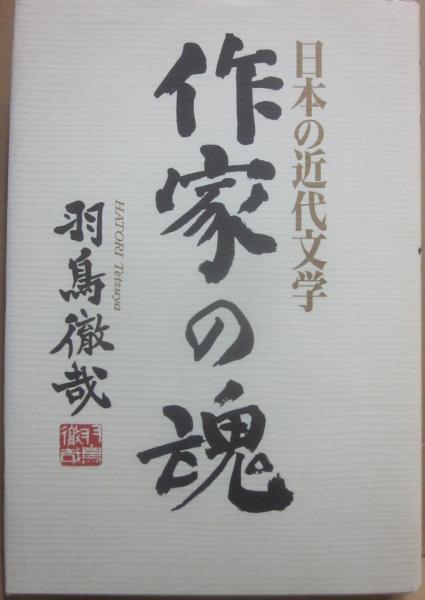 日本の近代文学
作家の魂
HATORI Tetsuya
羽鳥徹哉
羽鳥
徹哉